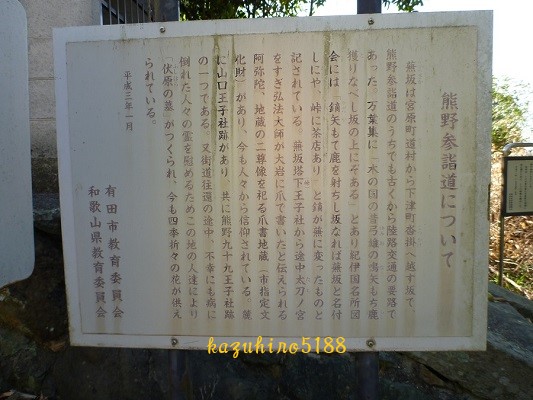 熊野参詣道について
蕪坂は宮原町道村から下津町沓掛へ越す坂で
熊野参詣道のうちでも古くから陸路交通の要路で
あった。万葉集に「木の国の昔弓雄の鳴矢もち鹿
獲りなべし坂の上にぞある」とあり紀伊国名所図
会には「鏑矢もて鹿を射ちし坂なれば蕪坂と名付
しにや、峠に茶店あり」と鏑が蕪に変ったものと
記されている。蕪坂塔下王子社から途中太刀ノ宮
をすぎ弘法大師が大岩に爪で書いたと伝えられる
阿弥陀、地蔵の二尊像を祀る爪書地蔵(市指定文
化財)があり、今も人々から信仰されている。麓
に山口王子社跡があり、共に熊野九十九王子社跡
の一つである。又街道往還の途中、不幸にも病に
倒れた人々の霊を慰めるためこの地の人達により
「伏原の墓」がつくられ、今も四季折々の花が供え
られている。
平成三年一月
有田市教育委員会
和歌山県教育委員会
kazuhiro5188